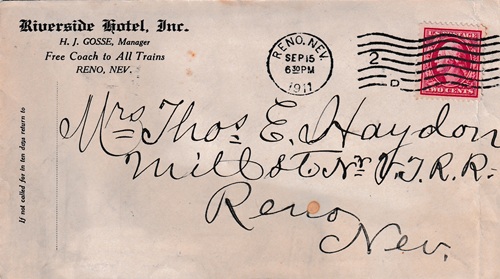 Riverside Hotel, Inc.
H. J. GOSSE, Manager
Free Coach to All Trains
RENO, NEV.
RENO, NEV.
SEP 15
630 PM
1911
2
D
U.S. POSTAGE
TWO CENTS
If not called for in ten days return to
Mrs Thos E. Haydon
Mill St Nr V. T. R. R.
Reno
Nev.